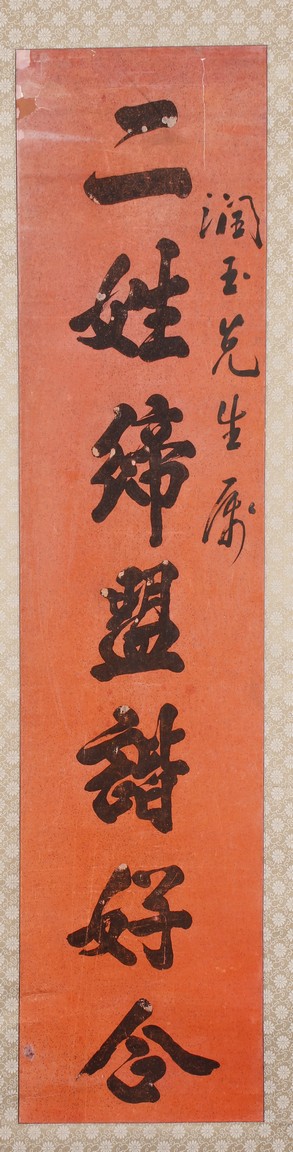 潤玉先生屬
二姓締盟諧好合